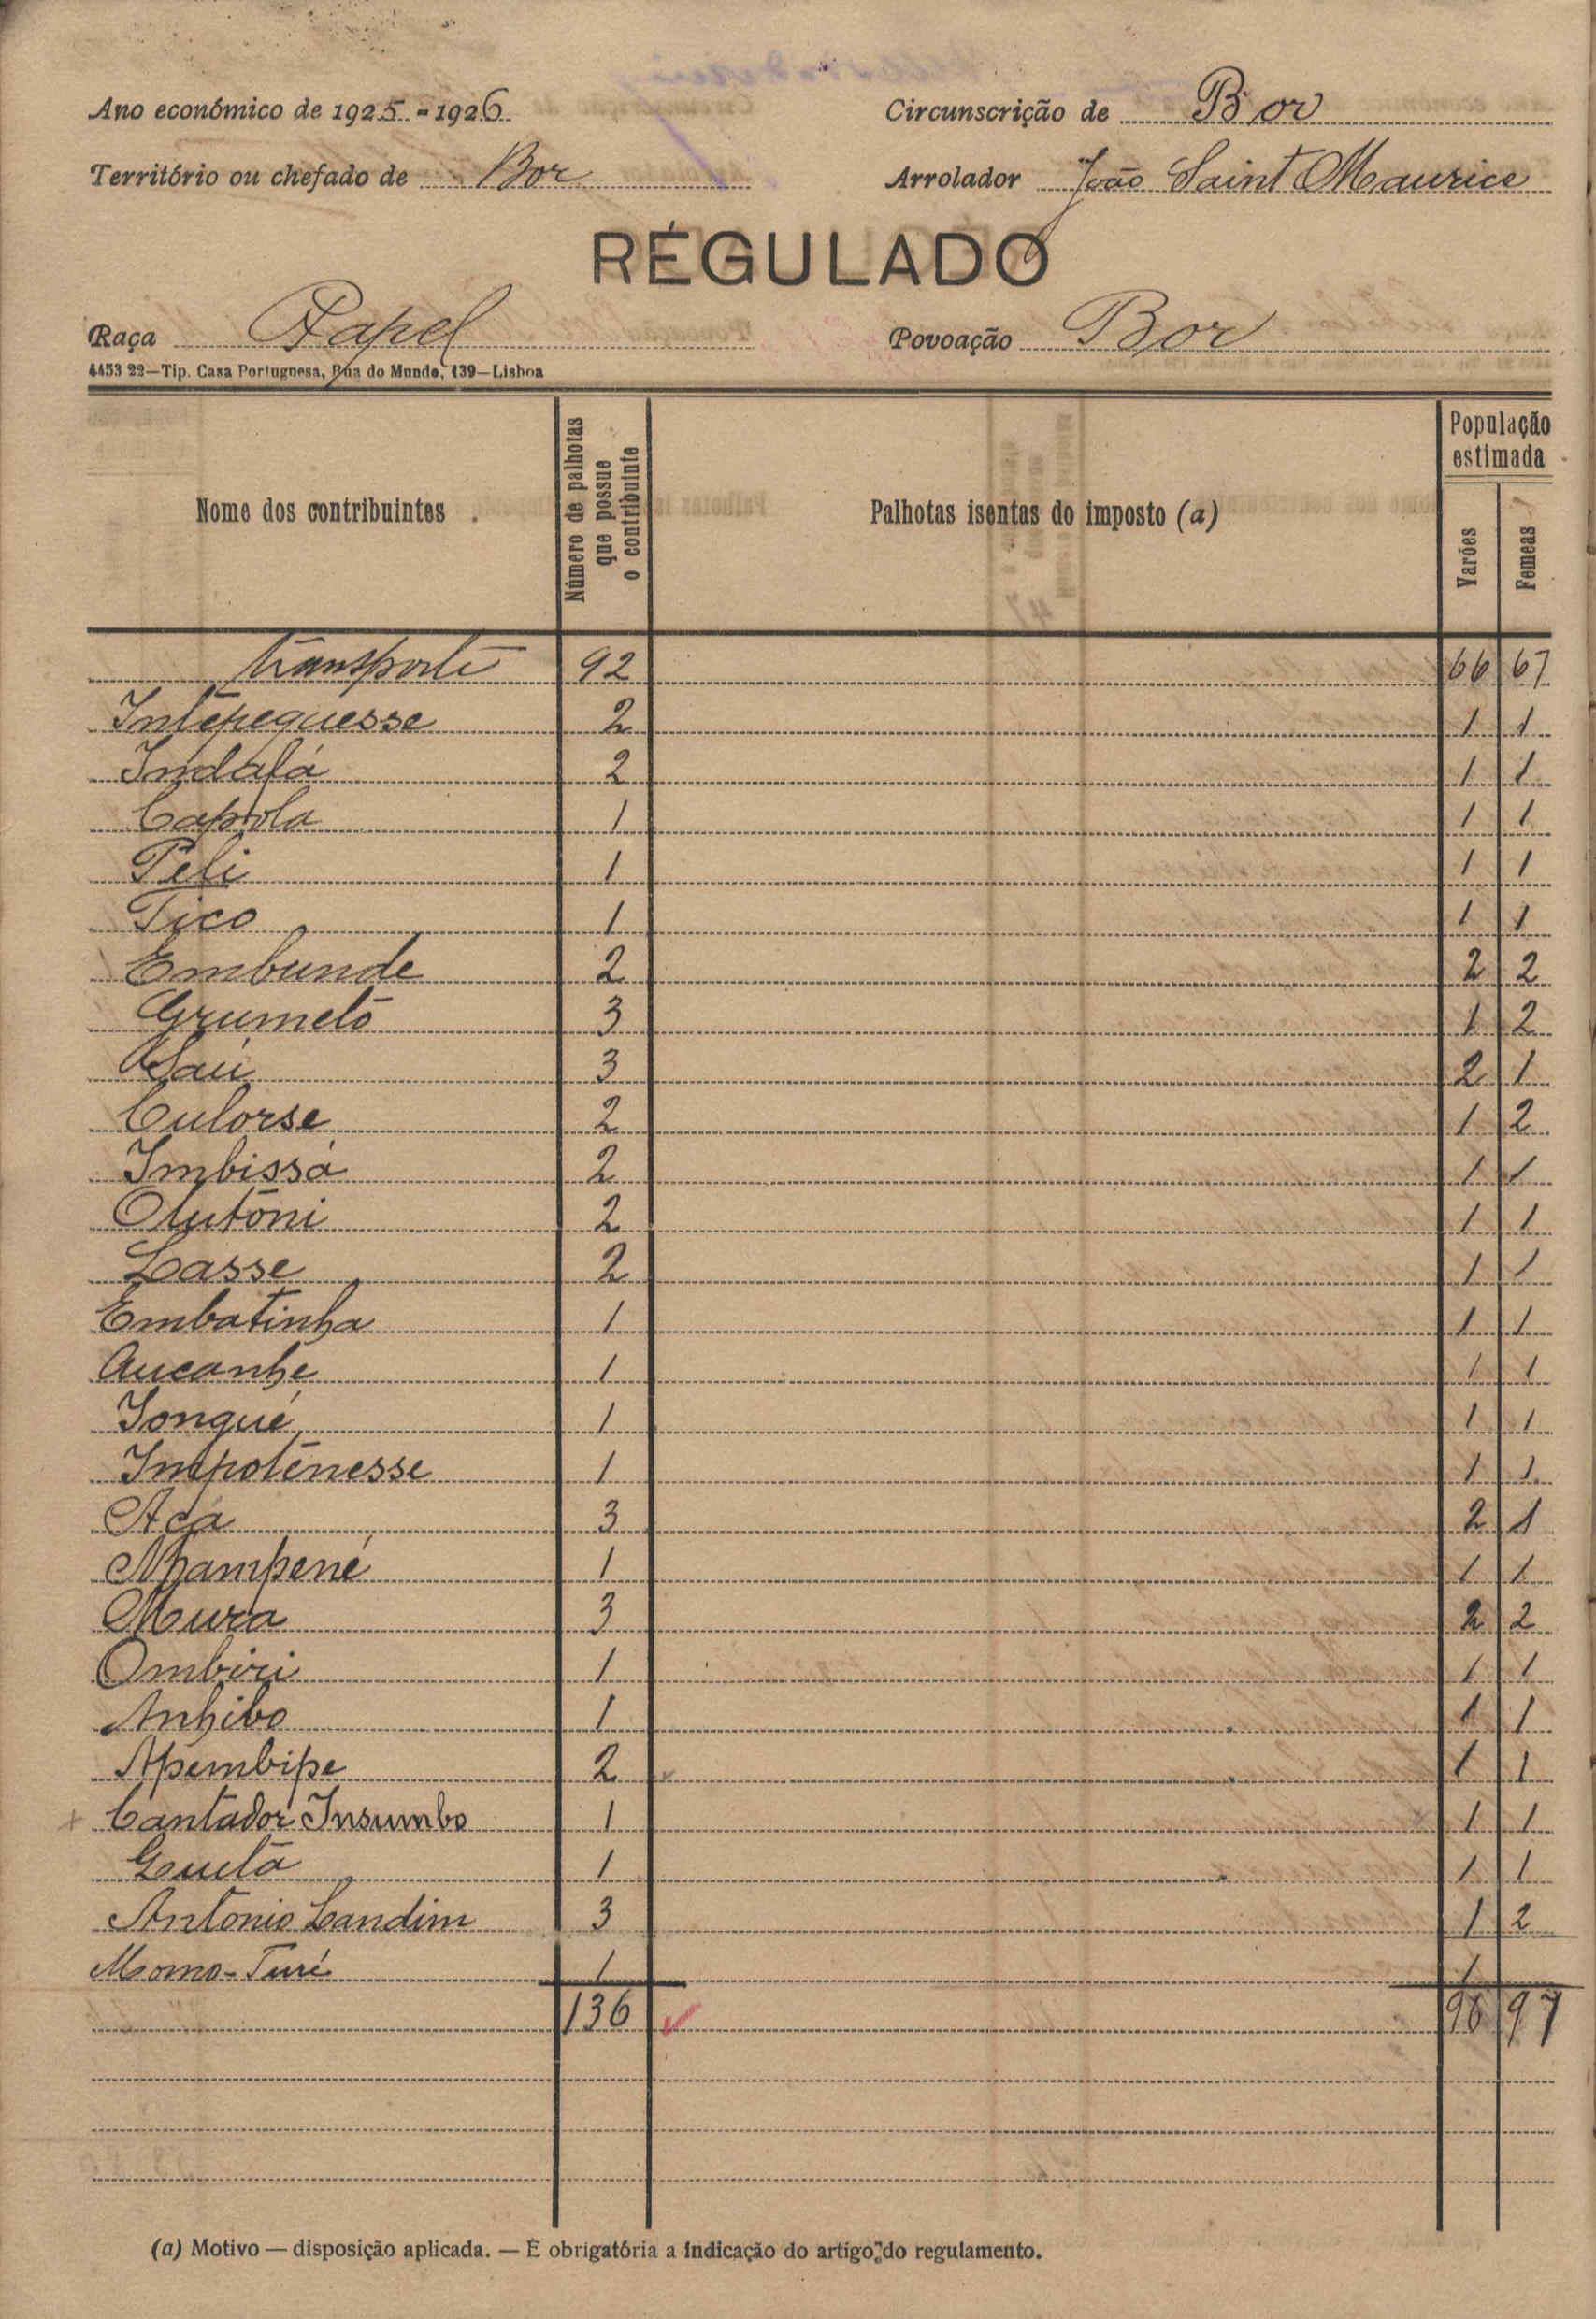 Ano económico de 1925-1926 Circunscrição de Bor
Território ou chefado de Bor Arrolador João Saint Maurice
RÉGULADO
Raça Papel Povoação Bor
4453 22—Tip. Casa Portuguesa, Rua do Mundo, 139—Lisboa
Nome dos contribuintes . Número de palhotas que possue o contribuinte Palhotas isentas do imposto (a) População estimada Varões Femeas
transporte 92 66 67
Intépequesse 2 1 1
Indafá 2 1 1
Capóla 1 1 1
Peli 1 1 1
Tico 1 1 1
Embunde 2 2 2
Grumeto 3 1 2
Saú 3 2 1
Culorse 2 1 2
Imbissá 2 1 1
Olutoni 2 1 1
Lasse 2 1 1
Embatinha 1 1 1
Aucanhe 1 1 1
Jonqué 1 1 1
Impotenesse 1 1 1
Acá 3 2 1
Mpampené 1 1 1
Mura 3 2 2
Ombiri 1 1 1
Anhibo 1 1 1
Apembipe 2 1 1
Cantador Insumbo 1 1 1
Guetá 1 1 1
Antonio Landim 3 1 2
Momo-Turé 1 1
136 96 97
(a) Motivo — disposição aplicada. — É obrigatória a indicação do artigo do regulamento.